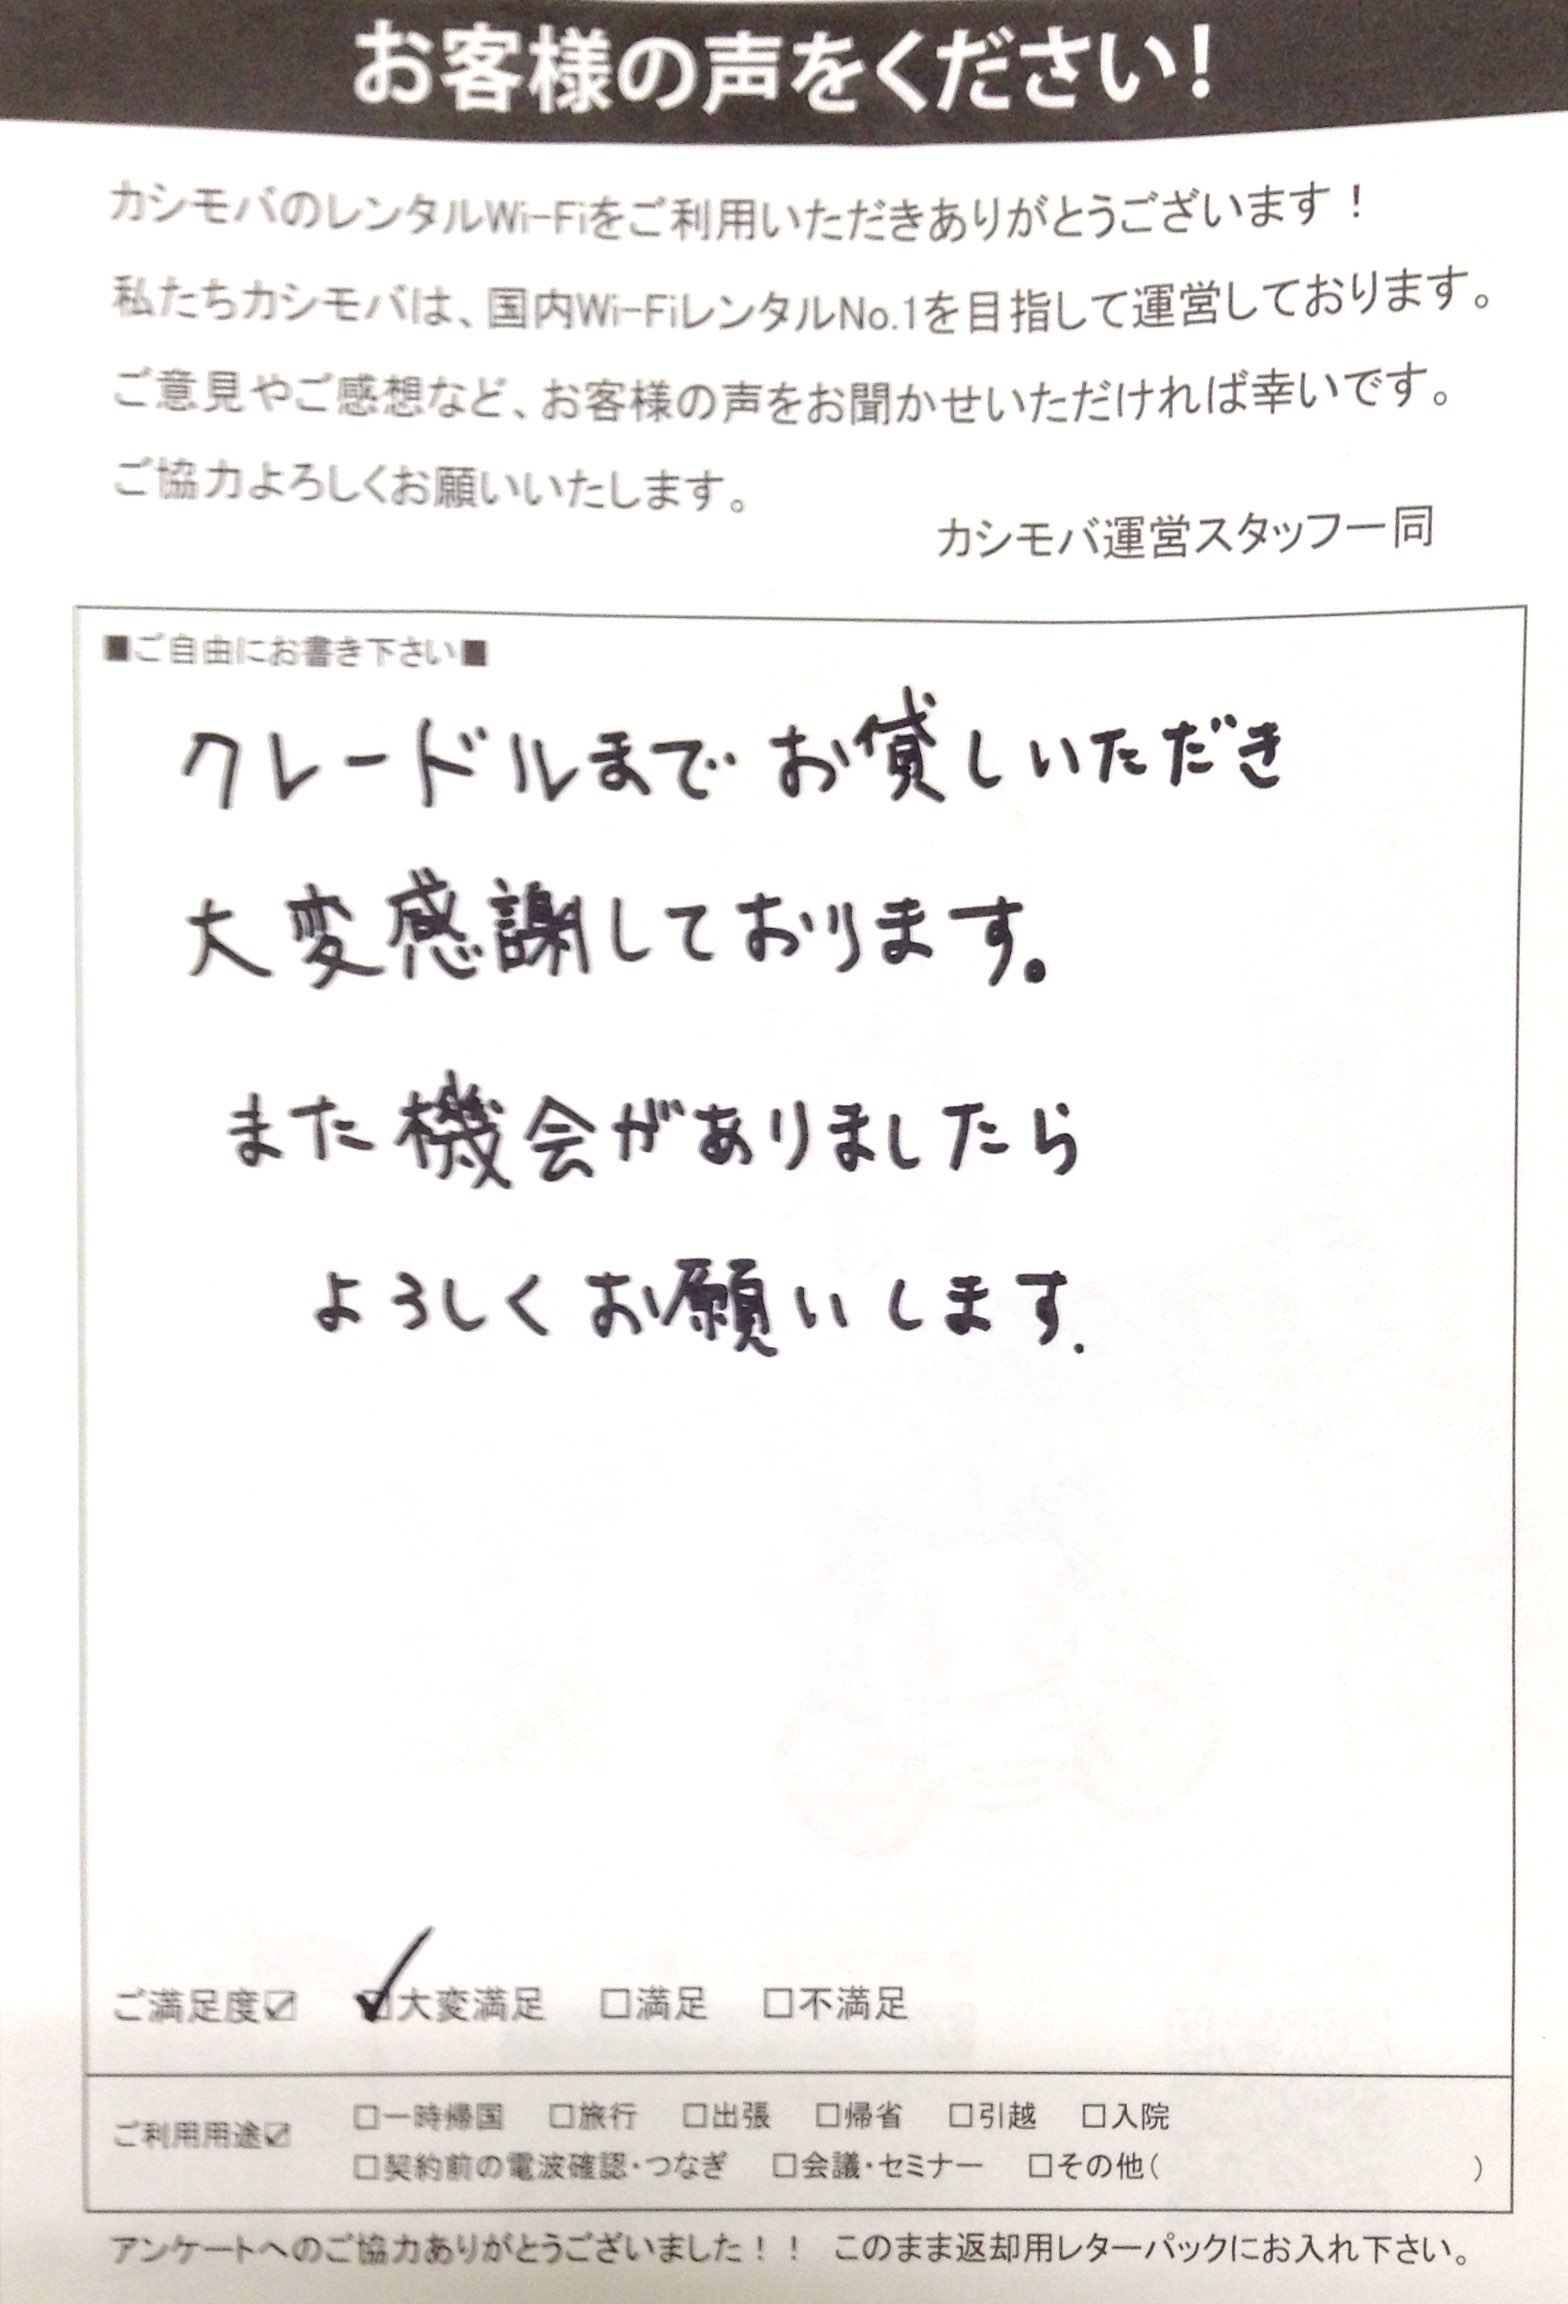 お客様の声をください!
カシモバのレンタルWi-Fiをご利用いただきありがとうございます！
私たちカシモバは、国内Wi-FiレンタルNo.1を目指して運営しております。
ご意見やご感想など、お客様の声をお聞かせいただければ幸いです。
ご協力よろしくお願いいたします。
カシモバ運営スタッフ一同
■ご自由にお書き下さい■
クレードルまでお貸しいただき
大変感謝しております。
また機会がありましたら
よろしくお願いします.
ご満足度☑ ☑大変満足 □満足 □不満足
ご利用用途☑ □一時帰国 □旅行 □出張 □帰省 □引越 □入院
□契約前の電波確認・つなぎ □会議・セミナー □その他( )
アンケートへのご協力ありがとうございました！！ このまま返却用レターパックにお入れ下さい。